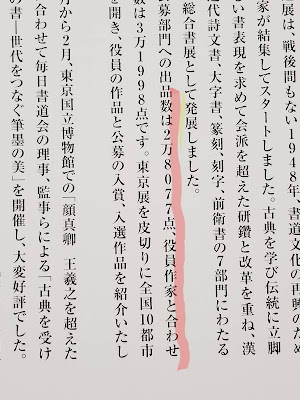 展は、戦後間もない1948年、書道文化の再興のため
家が結集してスタートしました。古典を学び伝統に立脚
い書表現を求めて会派を超えた研鑽と改革を重ね、漢
代詩文書、大字書、篆刻、刻字、前衛書の7部門にわたる
総合書展として発展しました。
公募部門への出品数は2万8077点、役員作家と合わせ
数は3万1998点です。東京展を皮切りに全国10都市
を開き、役員の作品と公募の入賞、入選作品を紹介いたし
月から2月、東京国立博物館での「顔真卿 王羲之を超えた
合わせて毎日書道会の理事、監事らによる「古典を受け
の書―世代をつなぐ筆墨の美」を開催し、大変好評でした。